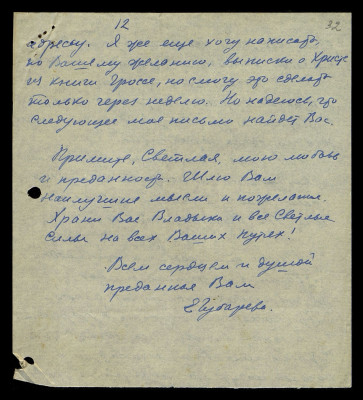 12
32
адресу. Я же еще хочу написать,
по Вашему желанию, выписки о Христе
из книги Гроссе, но смогу это сделать
только через неделю. Но надеюсь, что
следующее мое письмо найдет Вас.
Примите, Светлая, мою любовь
и преданность. Шлю Вам
наилучшие мысли и пожелания.
Храни Вас Владыка и все Светлые
Силы на всех Ваших путях!
Всем сердцем и душой
преданная Вам
Е Губарева.